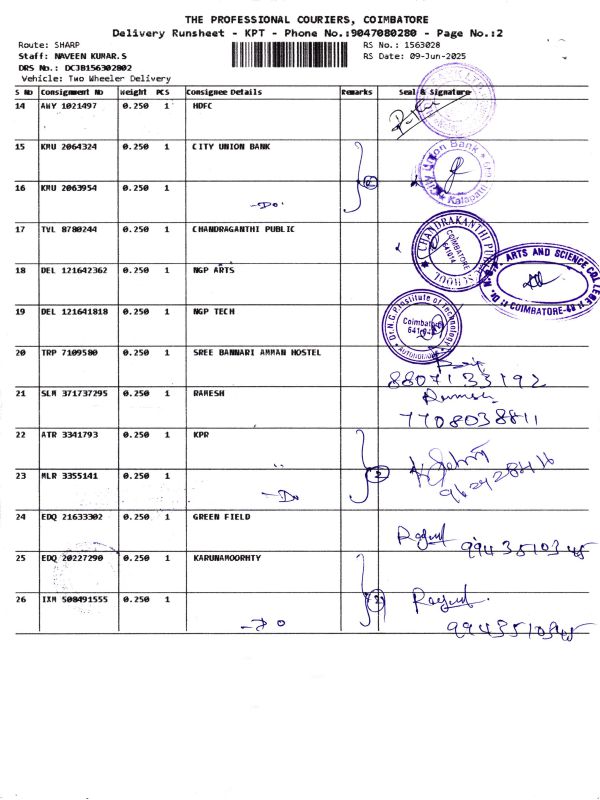 THE PROFESSIONAL COURIERS, COIMBATORE
Delivery Runsheet - KPT - Phone No.:9047080280 - Page No.:2
Route: SHARP RS No.: 1563028
Staff: NAVEEN KUMAR.S RS Date: 09-Jun-2025
DRS No.: DCJB156302802
Vehicle: Two Wheeler Delivery
S NO Consignment No Weight PCS Consignee Details Remarks Seal & Signature
14 AWY 1021497 0.250 1 HDFC
15 KMU 2064324 0.250 1 CITY UNION BANK City Union Bank Kalapatti
16 KMU 2063954 0.250 1 -Do- 2
17 TVL 8780244 0.250 1 CHANDRAGANTHI PUBLIC CHANDRAKANTHI PUBLIC SCHOOL COIMBATORE 641014
18 DEL 121642362 0.250 1 NGP ARTS Dr. N.G.P. ARTS AND SCIENCE COLLEGE COIMBATORE-48
19 DEL 121641818 0.250 1 NGP TECH Dr.N.G.P.Institute of Technology Coimbatore AUTONOMOUS
20 TRP 7109580 0.250 1 SREE BANNARI AMMAN HOSTEL
8807133192
21 SLM 371737295 0.250 1 RAMESH Ramesh
7708038811
22 ATR 3341793 0.250 1 KPR
23 MLR 3355141 0.250 1 -Do 2
24 EDQ 21633302 0.250 1 GREEN FIELD Ragul 9943510345
25 EDQ 20227290 0.250 1 KARUNAMOORHTY
26 IXM 508491555 0.250 1 -Do 2 Ragul
9943510345